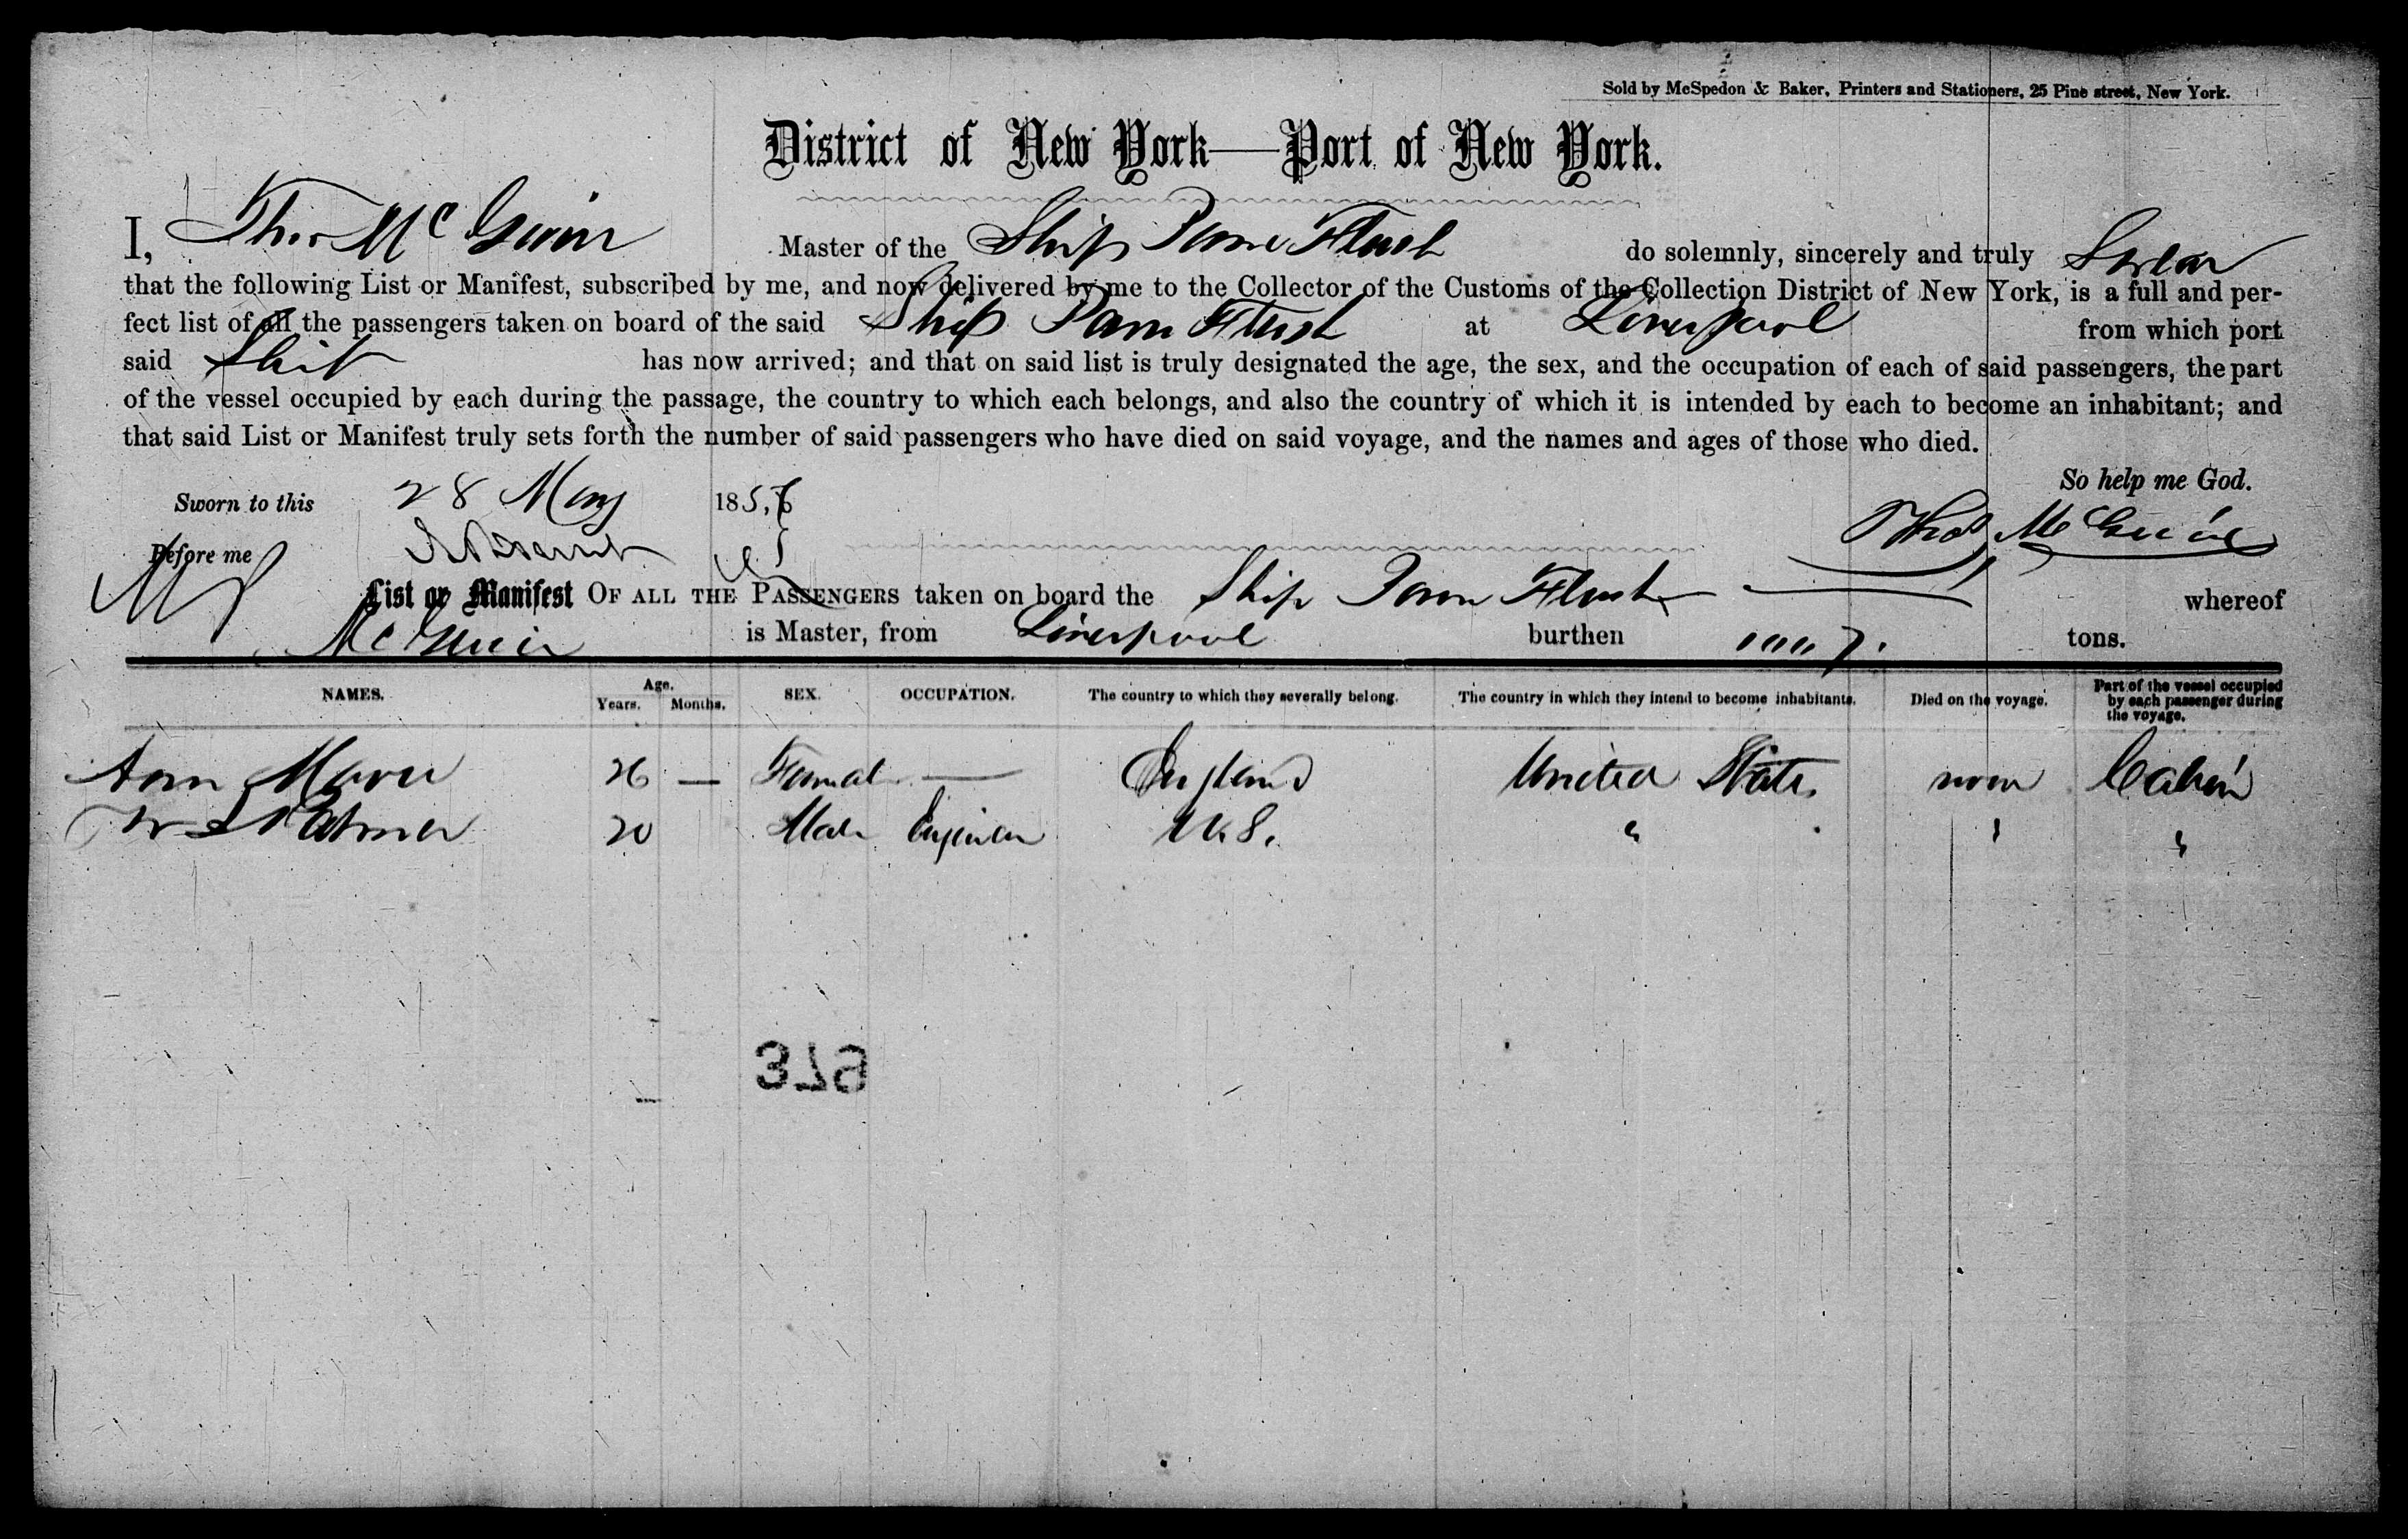 Sold by McSpedon & Baker, Printers and Stationers, 25 Pine street, New York.
District of New York—Port of New York.
I, Thos McGuire Master of the Ship do solemnly, sincerely and truly Swear
that the following List or Manifest, subscribed by me, and now delivered by me to the Collector of the Customs of the Collection District of New York, is a full and per-
fect list of all the passengers taken on board of the said Ship at Liverpool from which port
said Ship has now arrived; and that on said list is truly designated the age, the sex, and the occupation of each of said passengers, the part
of the vessel occupied by each during the passage, the country to which each belongs, and also the country of which it is intended by each to become an inhabitant; and
that said List or Manifest truly sets forth the number of said passengers who have died on said voyage, and the names and ages of those who died.
So help me God.
Sworn to this 28 May 185
Thos McGuire
Before me
List or Manifest OF ALL THE PASSENGERS taken on board the Ship whereof
McGuire is Master, from Liverpool burthen tons.
NAMES. Age. Years. Months. SEX. OCCUPATION. The country to which they severally belong. The country in which they intend to become inhabitants. Died on the voyage. Part of the vessel occupied by each passenger during the voyage.
Ann 26 — Female — England United States none Cabin
Palmer 20 Male Engineer U.S. " " "
376